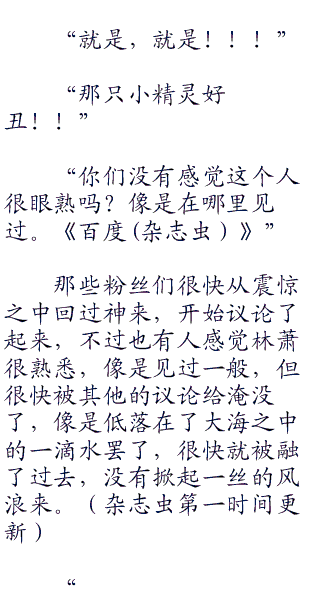 “就是，就是！！！”
“那只小精灵好
丑！！”
“你们没有感觉这个人
很眼熟吗？像是在哪里见
过。《百度(杂志虫）》”
那些粉丝们很快从震惊
之中回过神来，开始议论了
起来，不过也有人感觉林萧
很熟悉，像是见过一般，但
很快被其他的议论给淹没
了，像是低落在了大海之中
的一滴水罢了，很快就被融
了过去，没有掀起一丝的风
浪来。（杂志虫第一时间更
新）
“